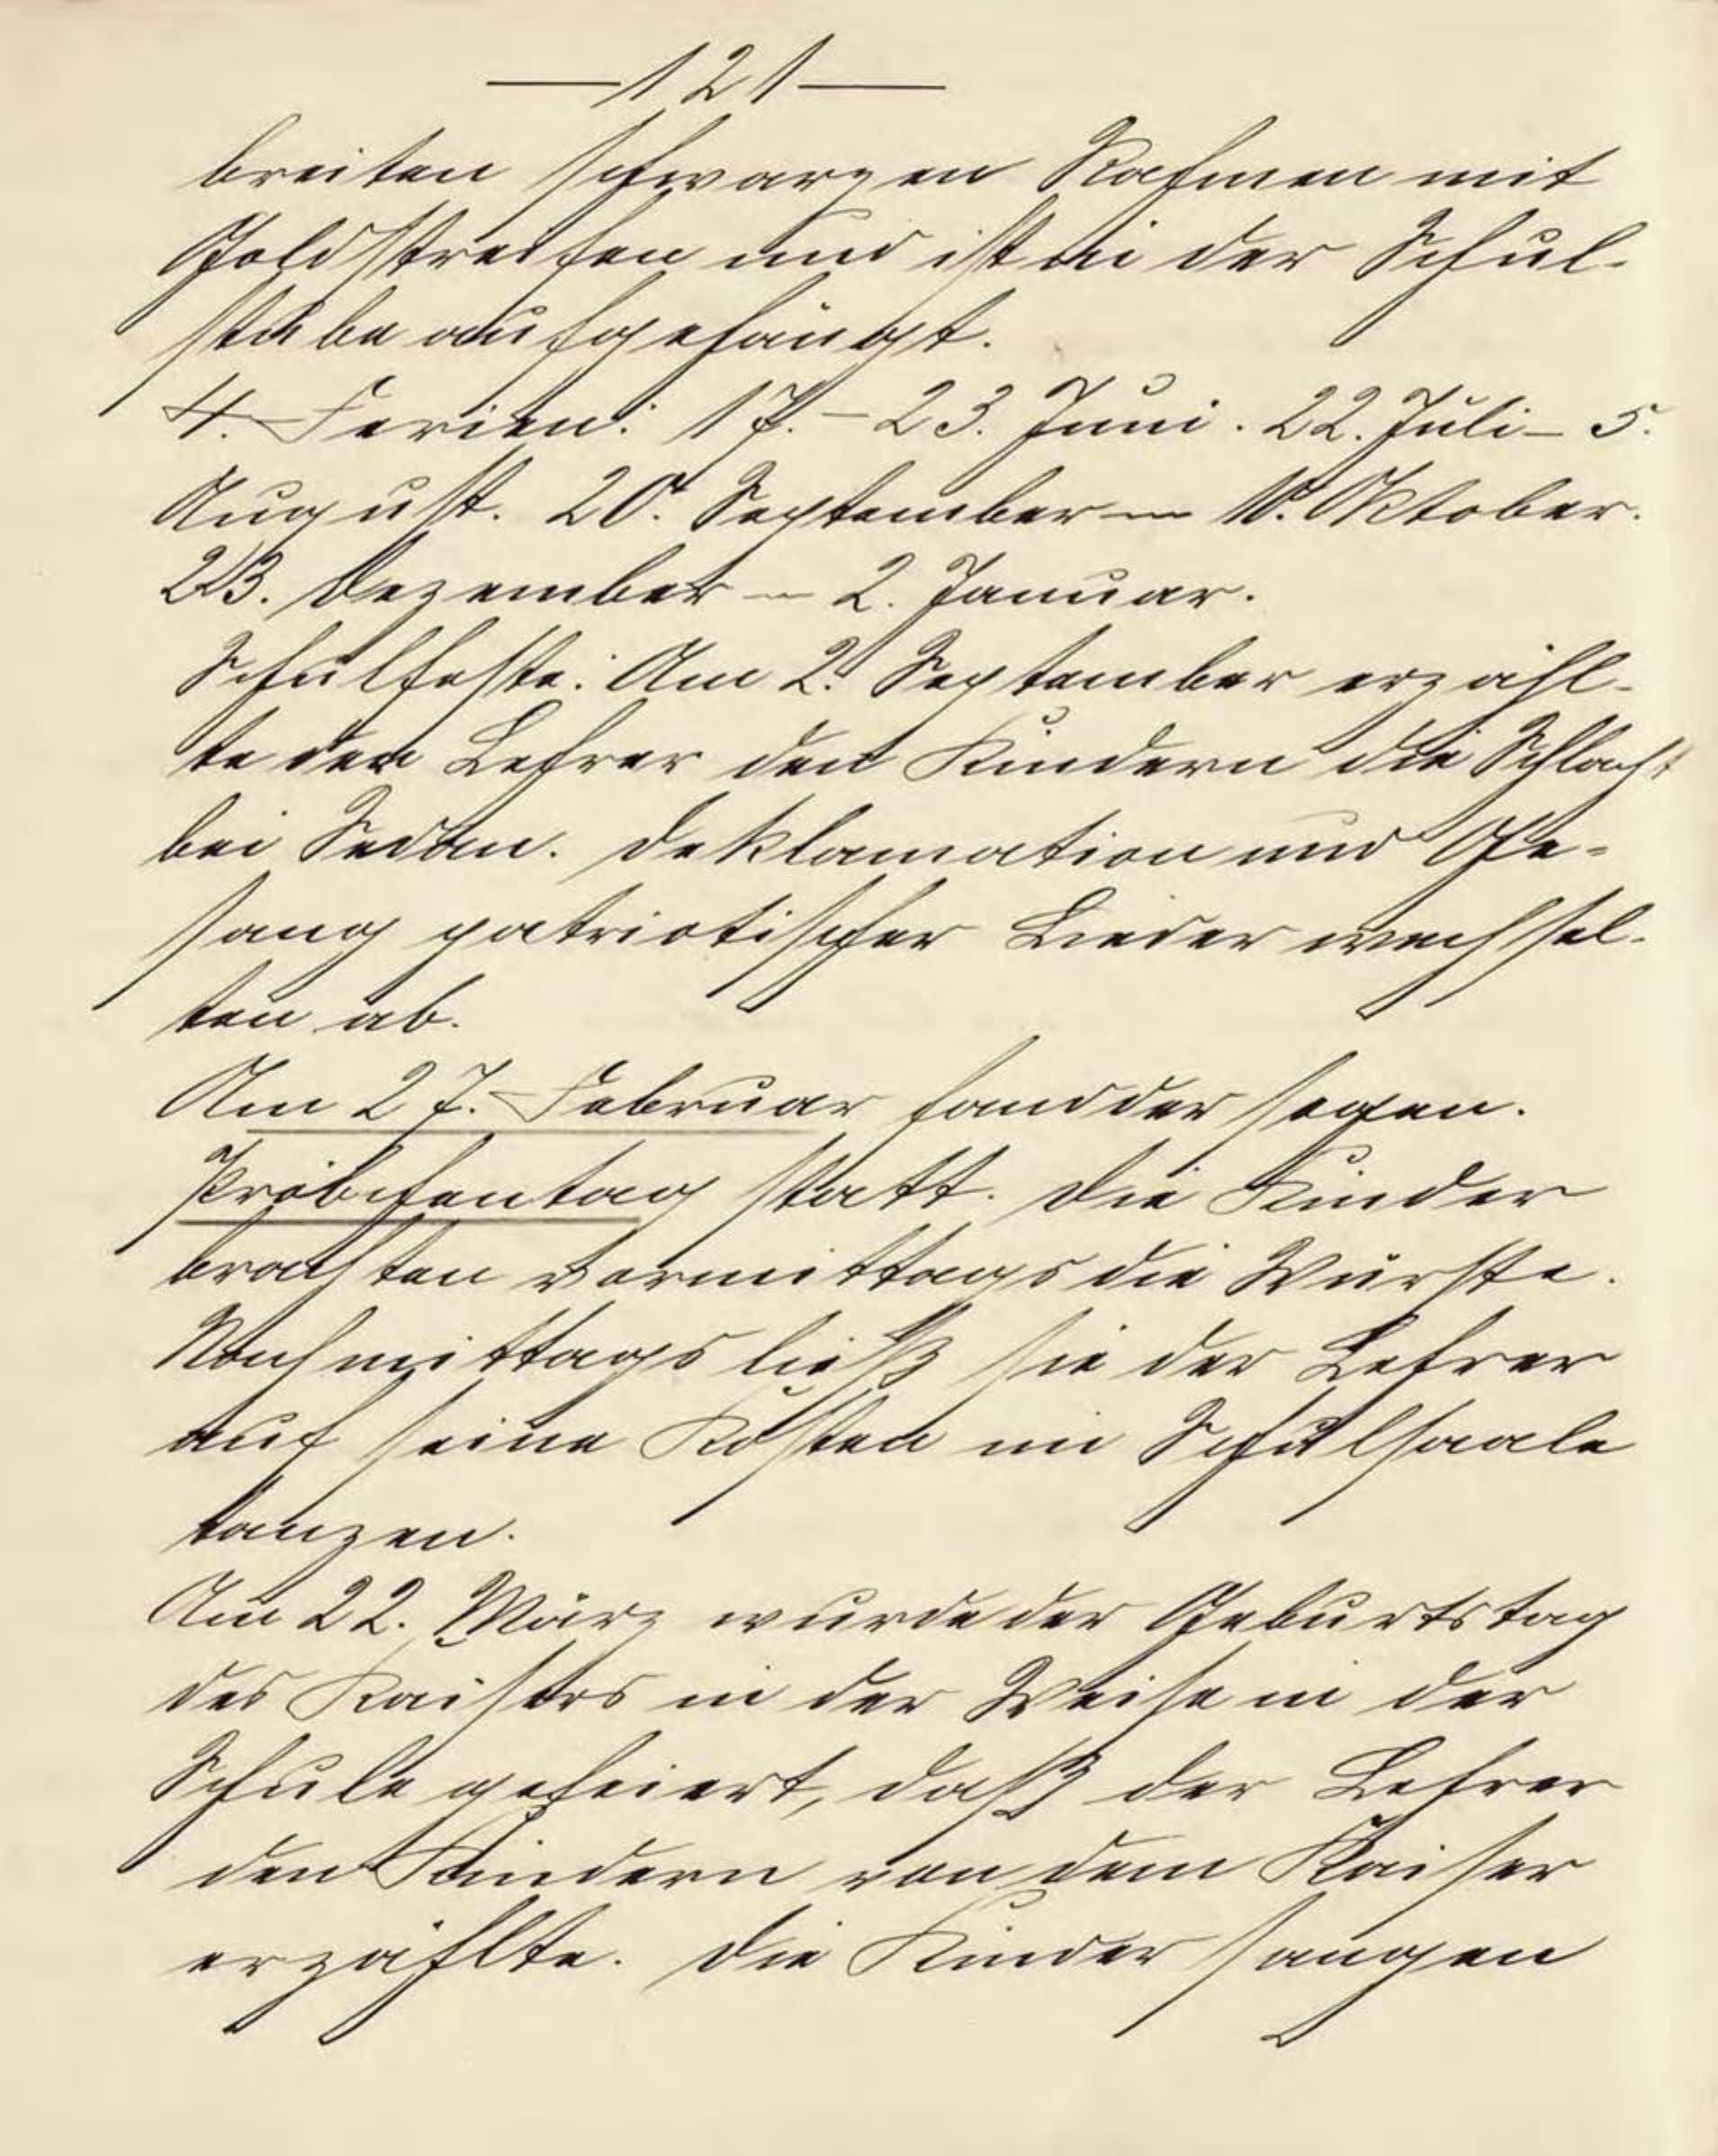 — 121 —
breiten schwarzen Rahmen mit
Goldstreifen und ist in der Schul-
stube aufgehängt.
4. Ferien: 17. – 23. Juni. 22. Juli – 5.
August. 20. September – 10. Oktober.
23. Dezember – 2. Januar.
Schulfeste: Am 2. September erzähl-
te der Lehrer den Kindern die Schlacht
bei Sedan. Deklamation und Ge-
sang patriotischer Lieder wechsel-
ten ab.
Am 27. Februar fand der sogen.
statt. Die Kinder
brachten vormittags die Würste.
Nachmittags ließ sie der Lehrer
auf seine Kosten im Schulsaale
tanzen.
Am 22. März wurde der Geburtstag
des Kaisers in der Weise in der
Schule gefeiert, daß der Lehrer
den Kindern von dem Kaiser
erzählte. Die Kinder sangen